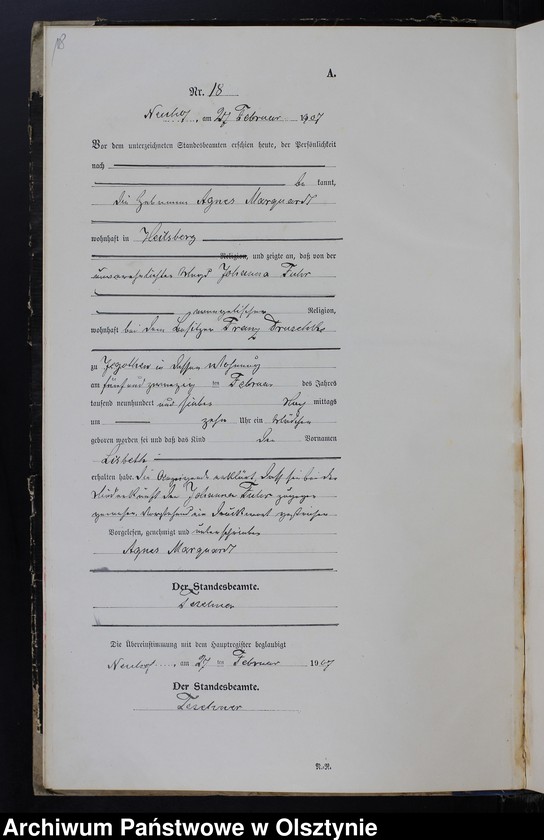 18
A.
Nr. 18
Neuhof, am 27 Februar 1907
Vor dem unterzeichneten Standesbeamten erschien heute, der Persönlichkeit
nach
be kannt,
die Hebamme Agnes Marquardt
wohnhaft in Heilsberg
Religion, und zeigte an, daß von der
unverehelichten Magd Johanna Fuhr
evangelischer Religion,
wohnhaft bei dem Besitzer Franz
zu Jegothen in dessen Wohnung
am fünfundzwanzig ten Februar des Jahres
tausend neunhundert und sieben Nach mittags
um zehn Uhr ein Mädchen
geboren worden sei und daß das Kind den Vornamen
Lisbeth
erhalten habe. Die Anzeigende erklärt, daß sie bei der
Niederkunft der Johanna Fuhr zugegen
gewesen. Vorstehend ein Druckwort gestrichen
Vorgelesen, genehmigt und unterschrieben
Agnes Marquardt
Der Standesbeamte.
Teschner
Die Übereinstimmung mit dem Hauptregister beglaubigt
Neuhof, am 27 ten Februar 1907
Der Standesbeamte.
Teschner
N.-R.
Archiwum Państwowe w Olsztynie